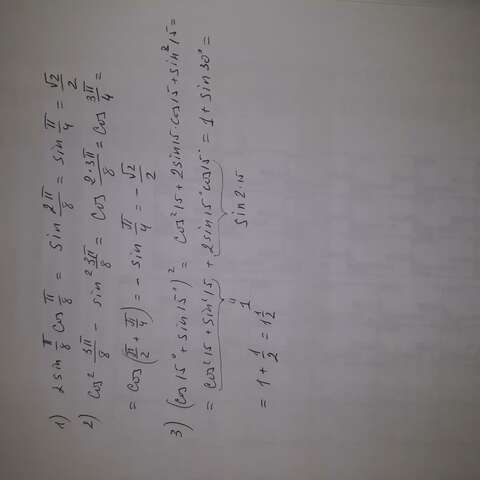 1) 2 sin π/8 cos π/8 = sin 2π/8 = sin π/4 = √2/2
2) cos² 3π/8 - sin² 3π/8 = cos 2·3π/8 = cos 3π/4 =
= cos(π/2 + π/4) = - sin π/4 = - √2/2
3) (cos 15° + sin 15°)² = cos² 15 + 2 sin 15 · cos 15 + sin² 15 =
= cos² 15 + sin² 15 + 2 sin 15° cos 15° = 1 + sin 30° =
" 1 sin 2·15
= 1 + 1/2 = 1 1/2